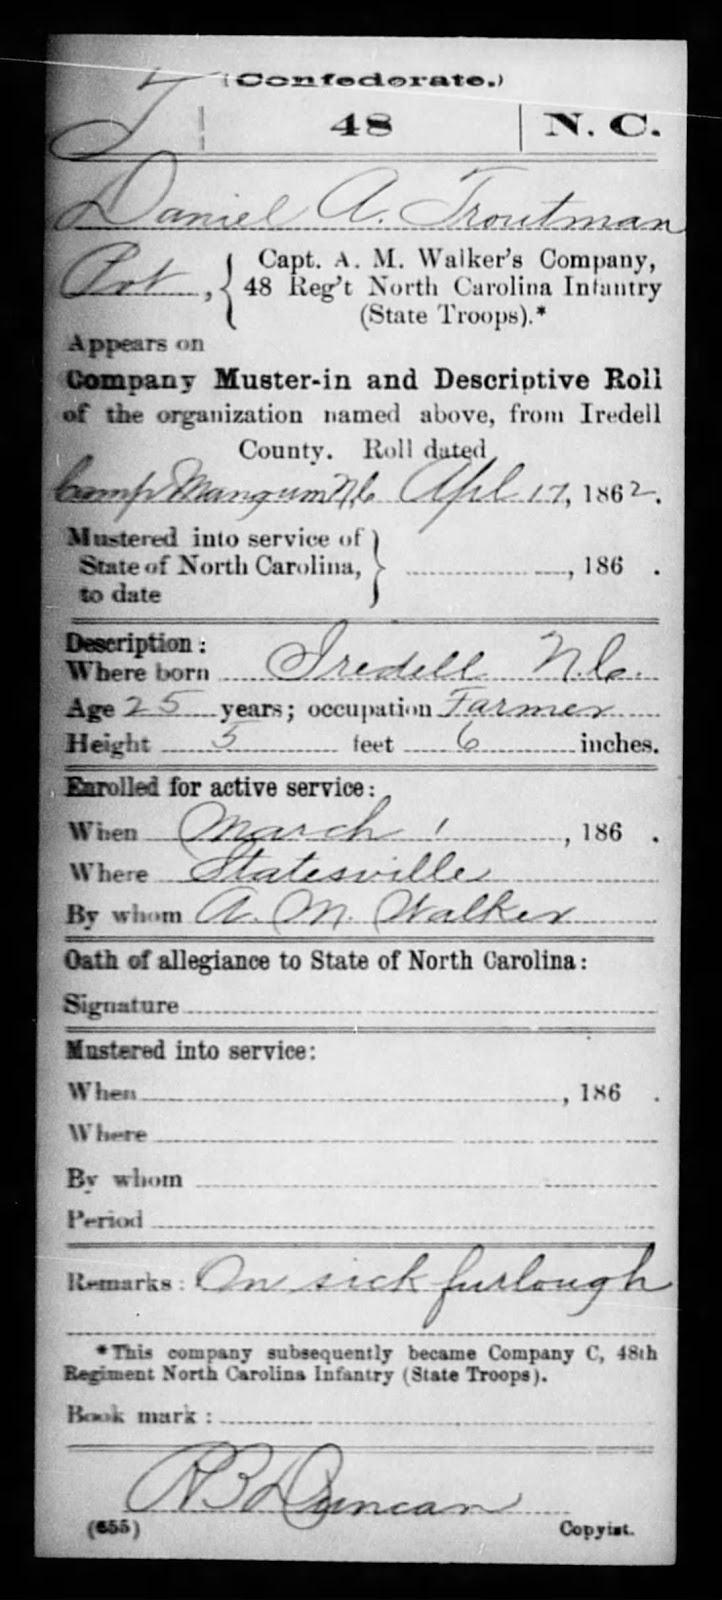 (Confederate.)
T | 48 | N. C.
Daniel A. Troutman
Pvt, { Capt. A. M. Walker's Company,
48 Reg't North Carolina Infantry
(State Troops).*
Appears on
Company Muster-in and Descriptive Roll
of the organization named above, from Iredell
County. Roll dated
Camp Mangum N.C. Apl 17, 1862.
Mustered into service of
State of North Carolina, } , 186 .
to date
Description:
Where born Iredell N.C.
Age 25 years; occupation Farmer
Height 5 feet 6 inches.
Enrolled for active service:
When March 1, 186 .
Where Statesville
By whom A. M. Walker
Oath of allegiance to State of North Carolina:
Signature
Mustered into service:
When , 186 .
Where
By whom
Period
Remarks: On sick furlough
*This company subsequently became Company C, 48th
Regiment North Carolina Infantry (State Troops).
Book mark:
R B Duncan
(655) Copyist.